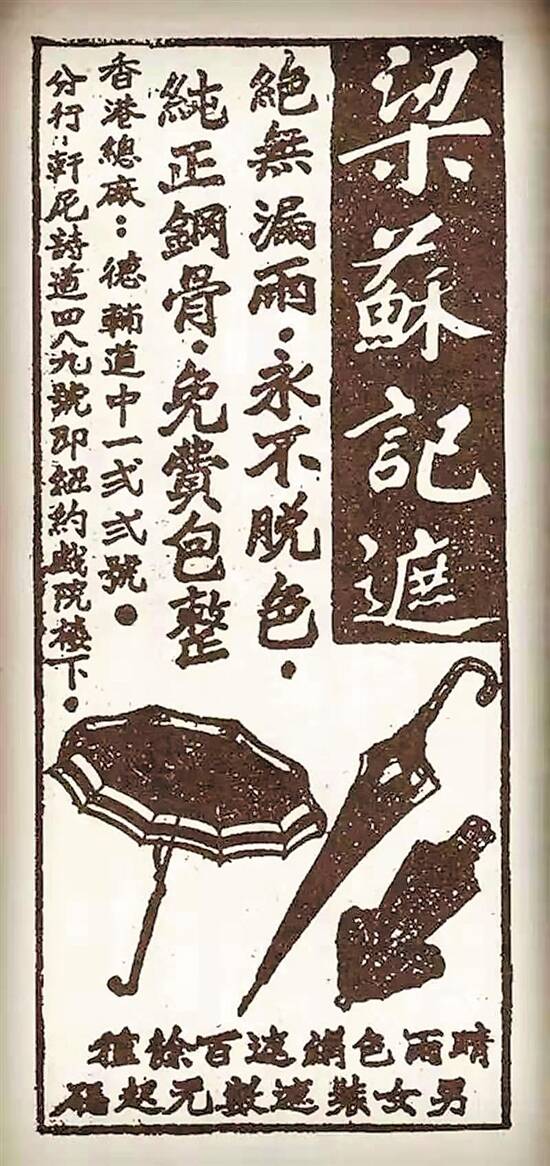 梁蘇記遮
絕無漏雨·永不脫色·
純正鋼骨·免費包整
香港總廠：德輔道中一弍弍號●
分行：軒尼詩道四八九號即紐約戲院樓下●
晴雨色綢遮百餘種
男女裝遮數元起碼